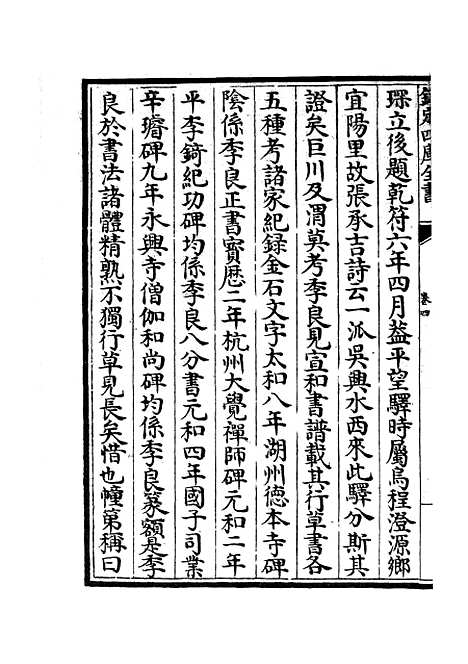 欽定四庫全書
卷四
琛立後題乾符六年四月葢平望驛時屬烏程澄源鄉
宜陽里故張承吉詩云一派吳興水西來此驛分斯其
證矣巨川及渭莫考李良見宣和書譜載其行草書各
五種考諸家紀録金石文字太和八年湖州徳本寺碑
陰係李良正書寳厯二年杭州大覺禪師碑元和二年
平李錡紀功碑均係李良八分書元和四年國子司業
辛璿碑九年永興寺僧伽和尚碑均係李良篆額是李
良於書法諸體精熟不獨行草見長矣惜也幢第稱曰